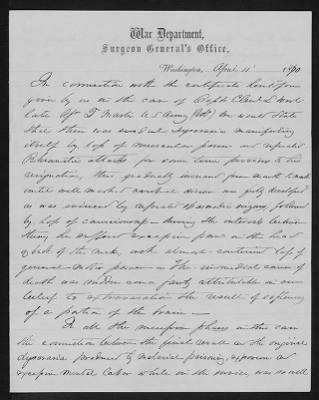 War Department,
Surgeon General's Office,
Washington, April 11' 1890
In connection with the certificate heretofore
given by us in the case of Capt
late U S Army we would state
that there was evident dyscrasia manifesting
itself by loss of muscular power and repeated
Rheumatic attacks for some time previous to his
resignation, this gradually increased from month to month
until well marked cerebral disease was fully developed
as was evinced by repeated seizures followed
by loss of consciousness - during the intervals between
them, he suffered excessive pain in the head
& back of the neck, with almost continued loss of
general motor power - The immediate cause of
death was sudden and fairly attributable in our
belief to extravasation the result of softening
of a portion of the brain -
In all the phases in this case
the connection between the final result & the original
dyscrasia produced by malarial poisoning, exposure &
excessive mental labor while in the service, was so well